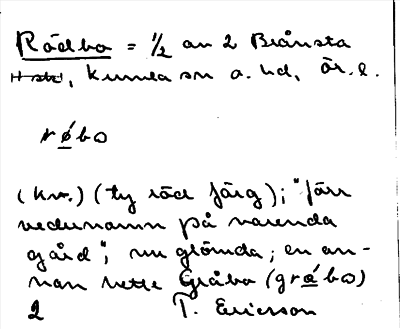 Rödbo = 1/2 av 2 Brånsta
Kumla sn o. hd, Ör. l.
rǿbo
(kv.) (ty röd färg); "förr
vedernamn på varenda
gård", nu glömda; en an-
nan hette Gråbo (gråbo)
2 T. Ericsson